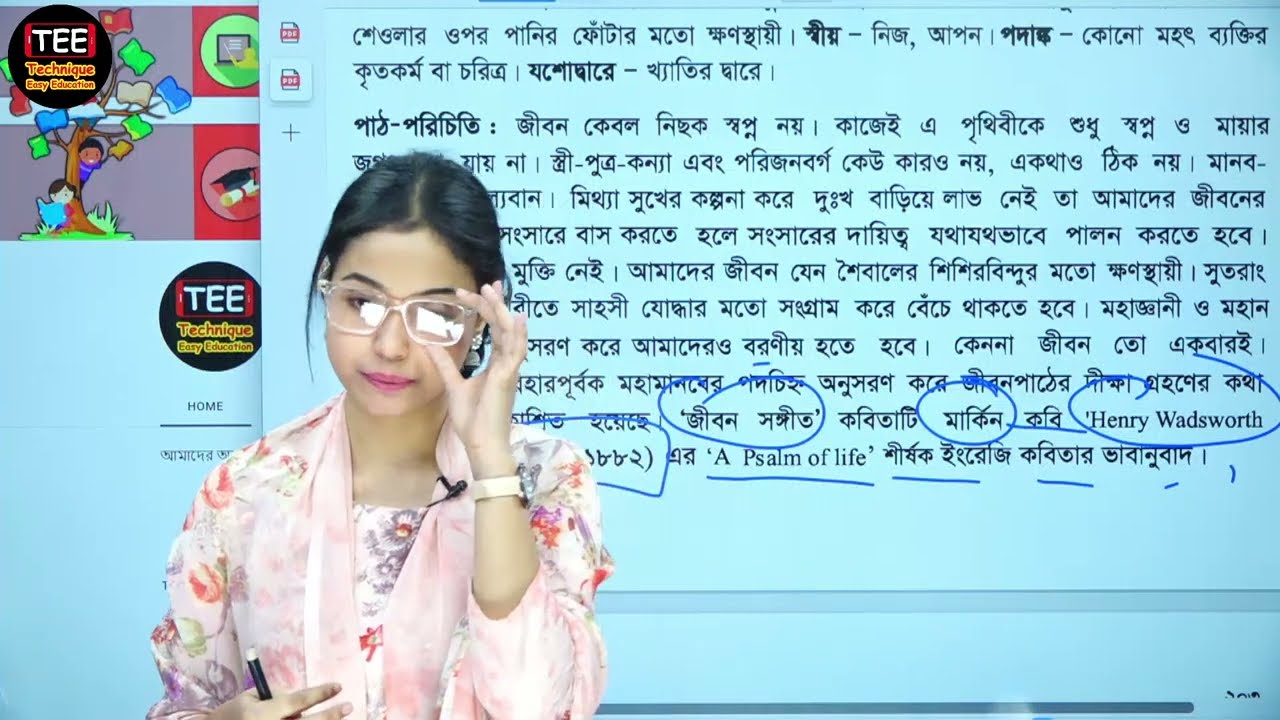 TEE
Technique
Easy Education
শেওলার ওপর পানির ফোঁটার মতো ক্ষণস্থায়ী। স্বীয় – নিজ, আপন। পদাঙ্ক – কোনো মহৎ ব্যক্তির
কৃতকর্ম বা চরিত্র। যশোদ্বারে – খ্যাতির দ্বারে।
পাঠ-পরিচিতি : জীবন কেবল নিছক স্বপ্ন নয়। কাজেই এ পৃথিবীকে শুধু স্বপ্ন ও মায়ার
যায় না। স্ত্রী-পুত্র-কন্যা এবং পরিজনবর্গ কেউ কারও নয়, একথাও ঠিক নয়। মানব-
মিথ্যা সুখের কল্পনা করে দুঃখ বাড়িয়ে লাভ নেই তা আমাদের জীবনের
সংসারে বাস করতে হলে সংসারের দায়িত্ব যথাযথভাবে পালন করতে হবে।
মুক্তি নেই। আমাদের জীবন যেন শৈবালের শিশিরবিন্দুর মতো ক্ষণস্থায়ী। সুতরাং
সাহসী যোদ্ধার মতো সংগ্রাম করে বেঁচে থাকতে হবে। মহাজ্ঞানী ও মহান
করে আমাদেরও বরণীয় হতে হবে। কেননা জীবন তো একবারই।
মহামানবের পদচিহ্ন অনুসরণ করে জীবনপাঠের দীক্ষা গ্রহণের কথা
হয়েছে। ‘জীবন সঙ্গীত’ কবিতাটি মার্কিন কবি 'Henry Wadsworth
১৮৮২) এর ‘A Psalm of life’ শীর্ষক ইংরেজি কবিতার ভাবানুবাদ।
TEE
Technique
Easy Education
HOME
আমাদের